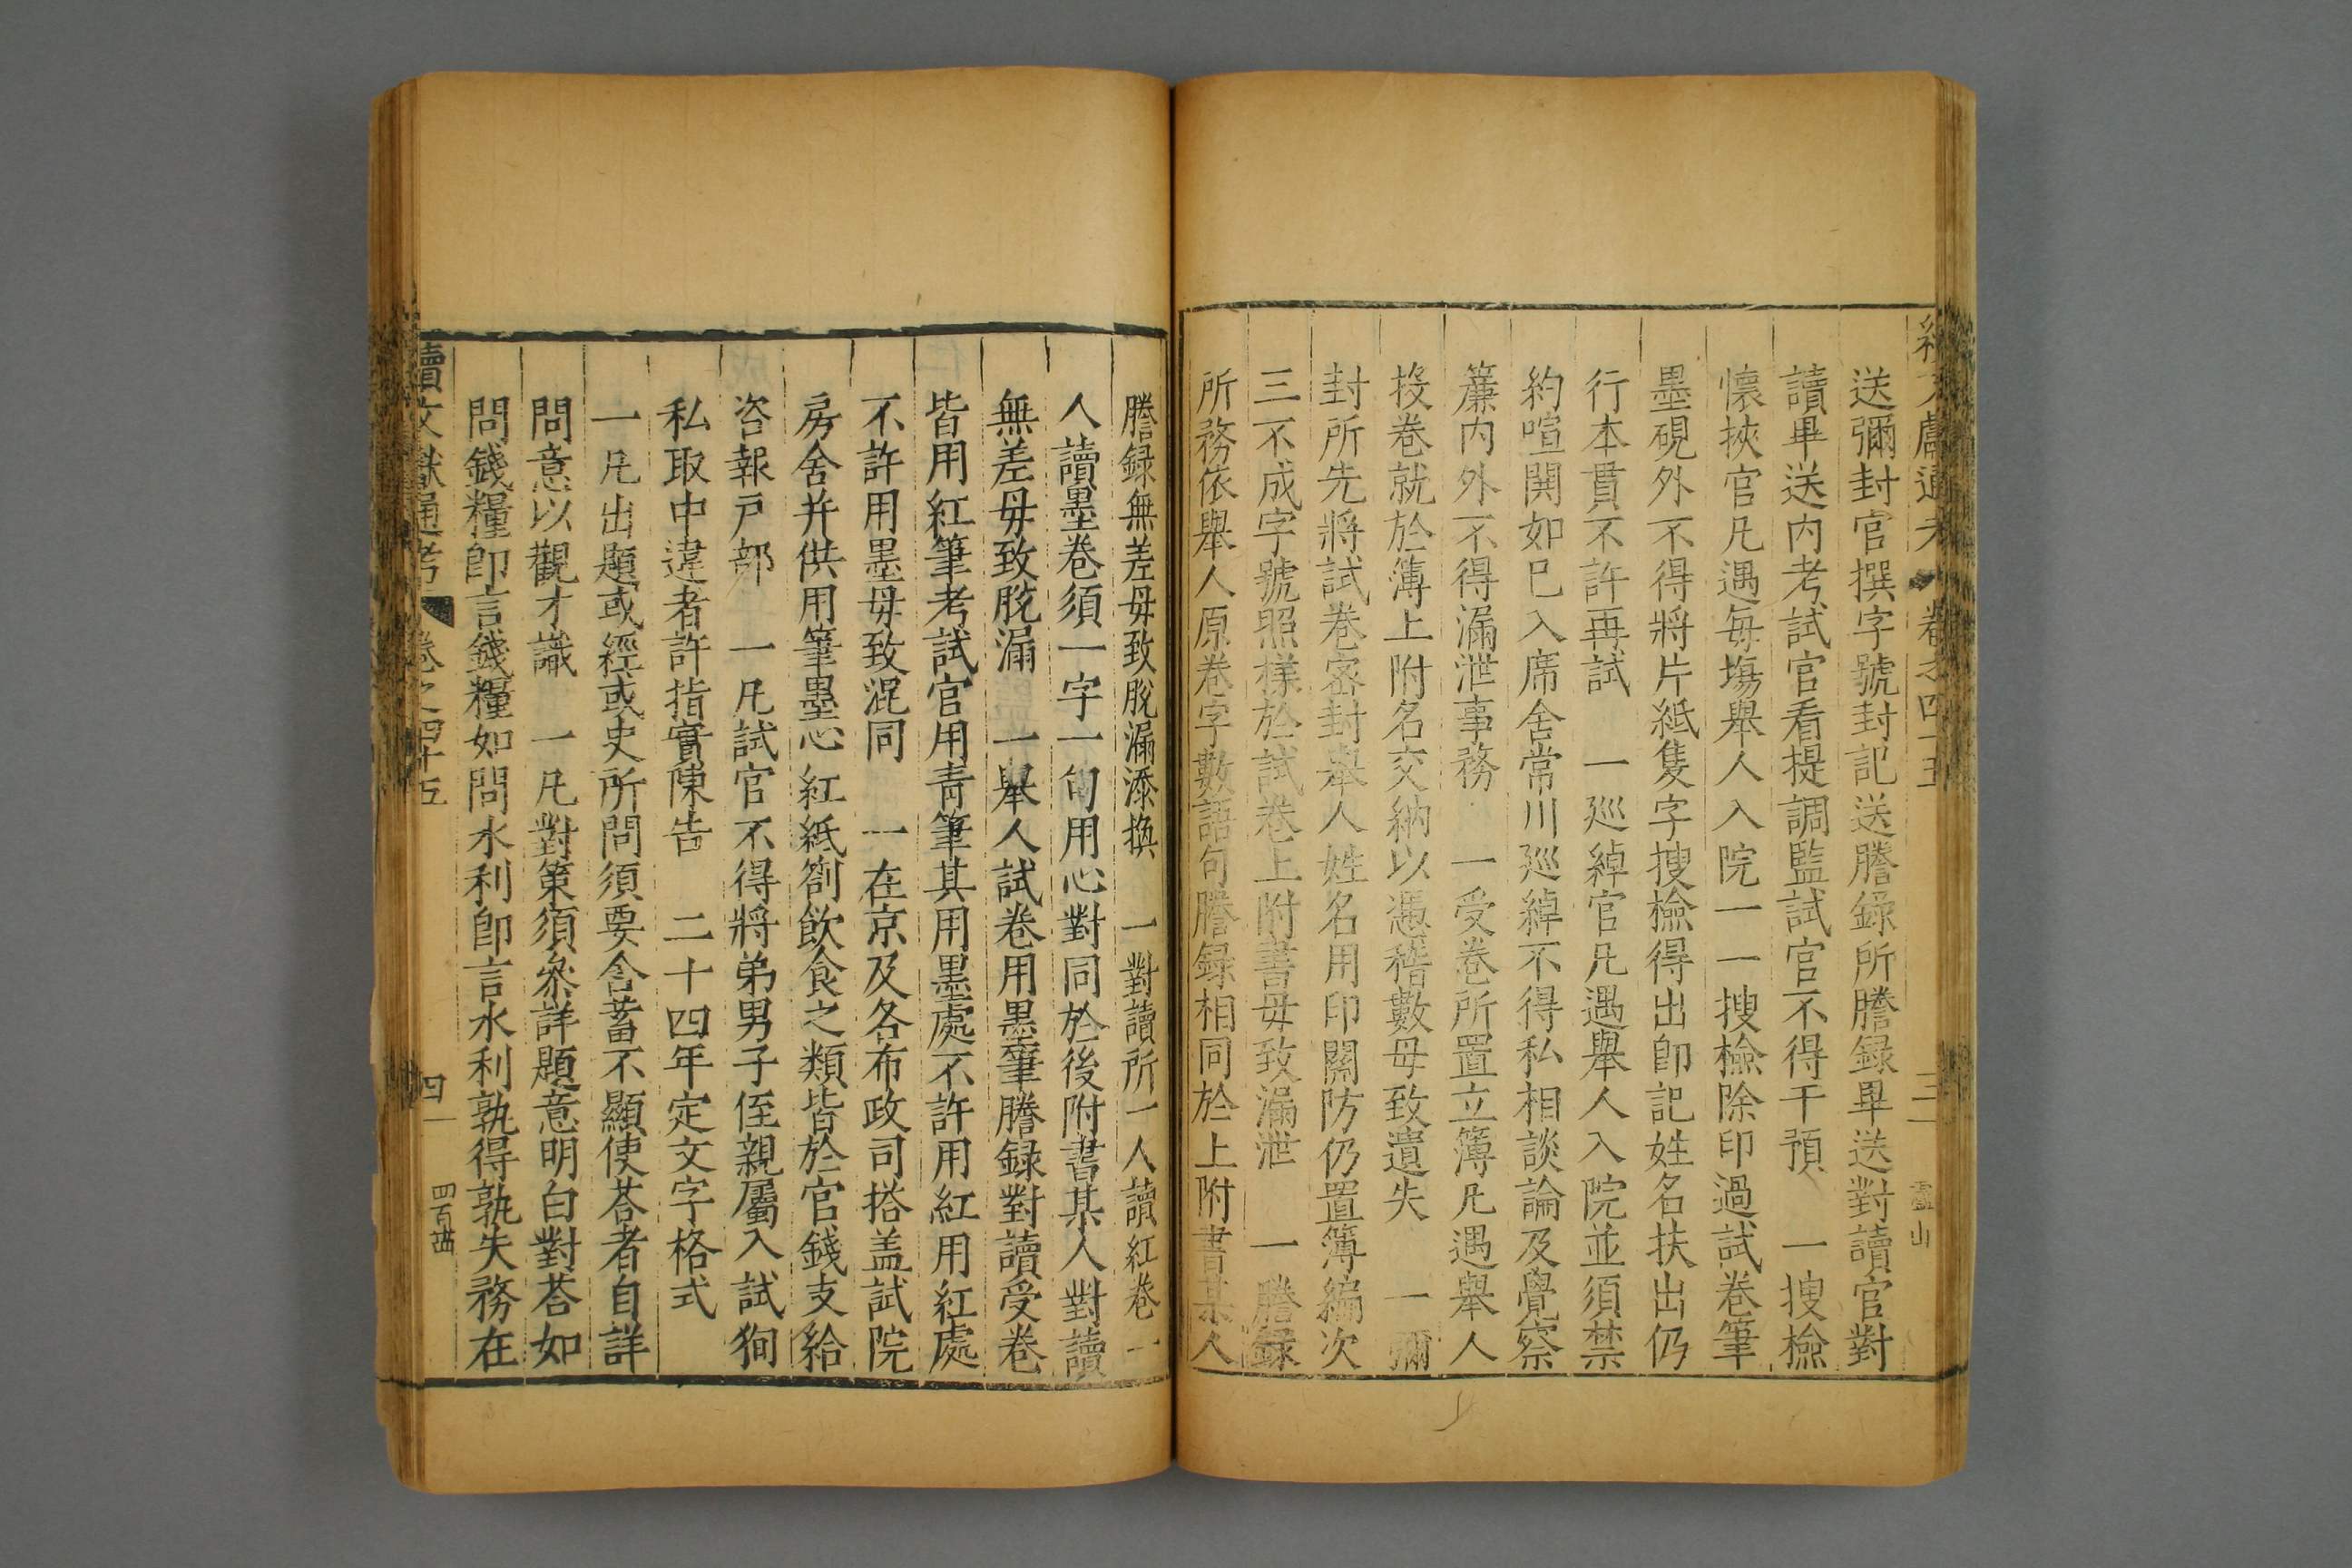 續文獻通考 卷之四十五 三 靈山
送彌封官撰字號封記送謄錄所謄錄畢送對讀官對
讀畢送内考試官看提調監試官不得干預 一搜檢
懷挾官凡遇每塲舉人入院一一搜檢除印過試卷筆
墨硯外不得將片紙隻字搜檢得出卽記姓名扶出仍
行本貫不許再試 一廵綽官凡遇舉人入院並須禁
約喧鬨如巳入席舍常川廵綽不得私相談論及覺察
簾内外不得漏泄事務 一受卷所置立簿凡遇舉人
投卷就於簿上附名交納以憑稽數毋致遺失 一彌
封所先將試卷密封舉人姓名用印關防仍置簿編次
三不成字號照樣於試卷上附書毋致漏泄 一謄録
所務依舉人原卷字數語句謄録相同於上附書某人
謄録無差毋致脫漏添換 一對讀所一人讀紅卷一
人讀墨卷須一字一句用心對同於後附書某人對讀
無差毋致脫漏 一舉人試卷用墨筆謄録對讀受卷
皆用紅筆考試官用青筆其用墨處不許用紅用紅處
不許用墨毋致混同 一在京及各布政司搭盖試院
房舍并供用筆墨心紅紙劄飲食之類皆於官錢支給
咨報戸部 一凡試官不得將弟男子侄親屬入試狥
私取中違者許指實陳告 二十四年定文字格式
一凡出題或經或史所問須要含蓄不顯使荅者自詳
問意以觀才識 一凡對策須叅詳題意明白對荅如
問錢糧卽言錢糧如問水利卽言水利孰得孰失務在
續文獻通考 卷之四十五 四 四百